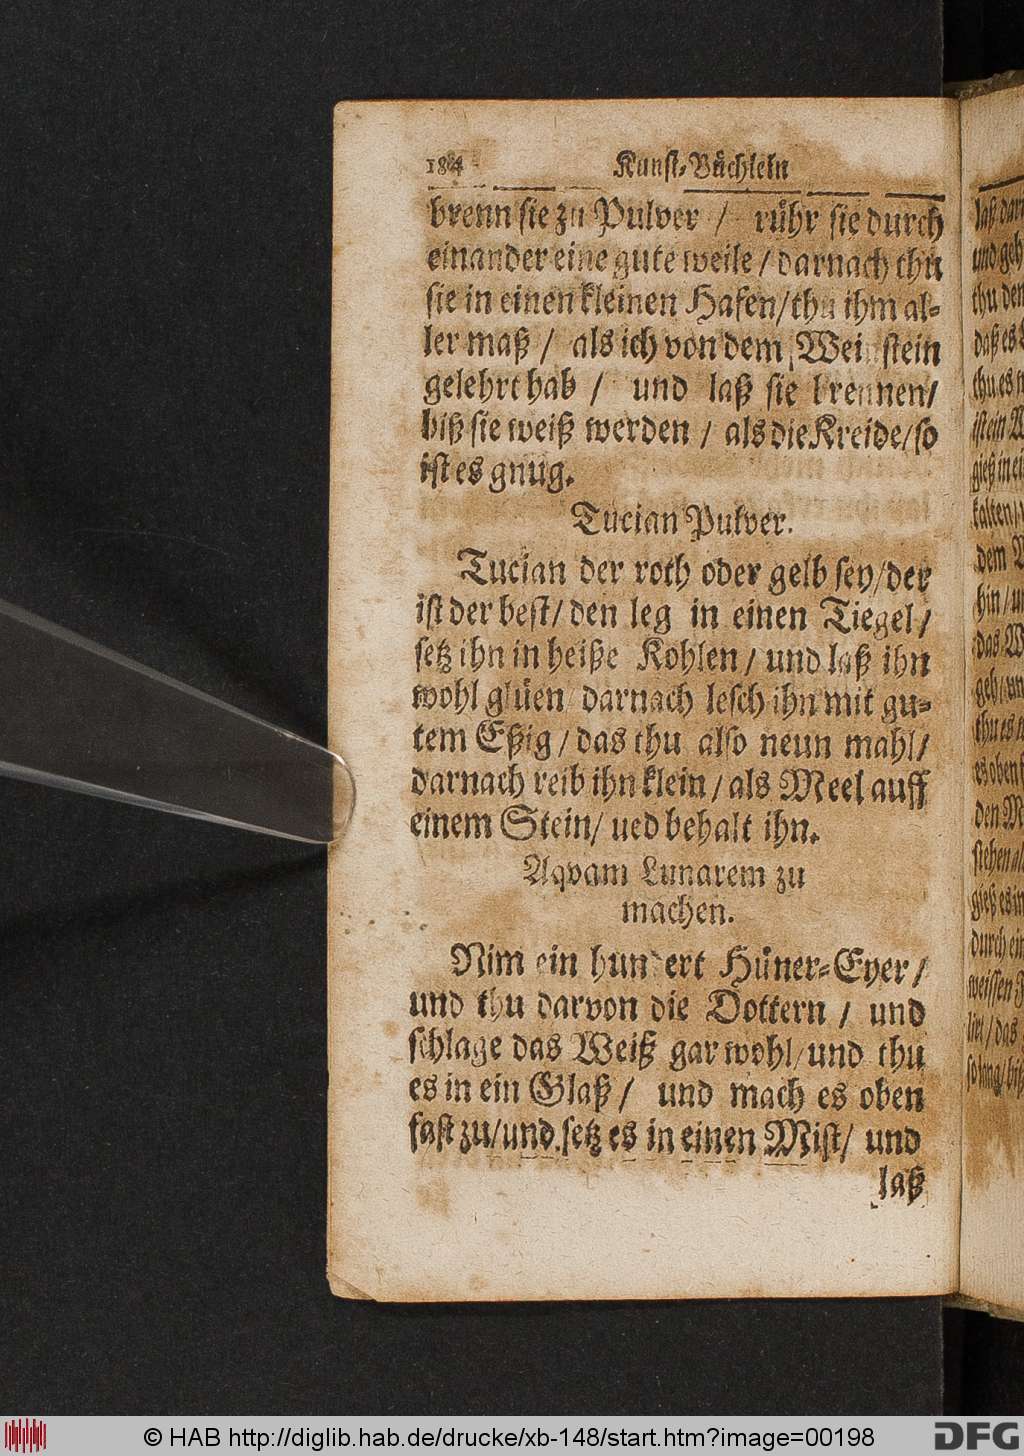 184 Kunst-Büchlein
brenn sie zu Pulver / rühr sie durch
einander eine gute weile / darnach thu
sie in einen kleinen Hafen/thu ihm al-
ler maß / als ich von dem Weinstein
gelehrt hab / und laß sie brennen/
biß sie weiß werden / als die Kreide/so
ist es gnug.
Tucian Pulver.
Tucian der roth oder gelb sey/der
ist der best/den leg in einen Tiegel/
setz ihn in heiße Kohlen/ und laß ihn
wohl glüen/ darnach lesch ihn mit gu-
tem Eßig/das thu also neun mahl/
darnach reib ihn klein/als Meel auff
einem Stein/ ued behalt ihn.
Aqvam Lunarem zu
machen.
Nim ein hundert Hüner-Eyer/
und thu darvon die Dottern / und
schlage das Weiß gar wohl/und thu
es in ein Glaß / und mach es oben
fast zu/und setz es in einen Mist/ und
laß
laß dar
und geh
thu den
daß es
thu es
ist ein
gieß in ei
kalten
dem
hin / u
das W
geh/un
thu es
es oben
den M
stehen al
gieß es in
durch ein
weissen
lirt / das
so lang/biß
© HAB http://diglib.hab.de/drucke/xb-148/start.htm?image=00198
DFG